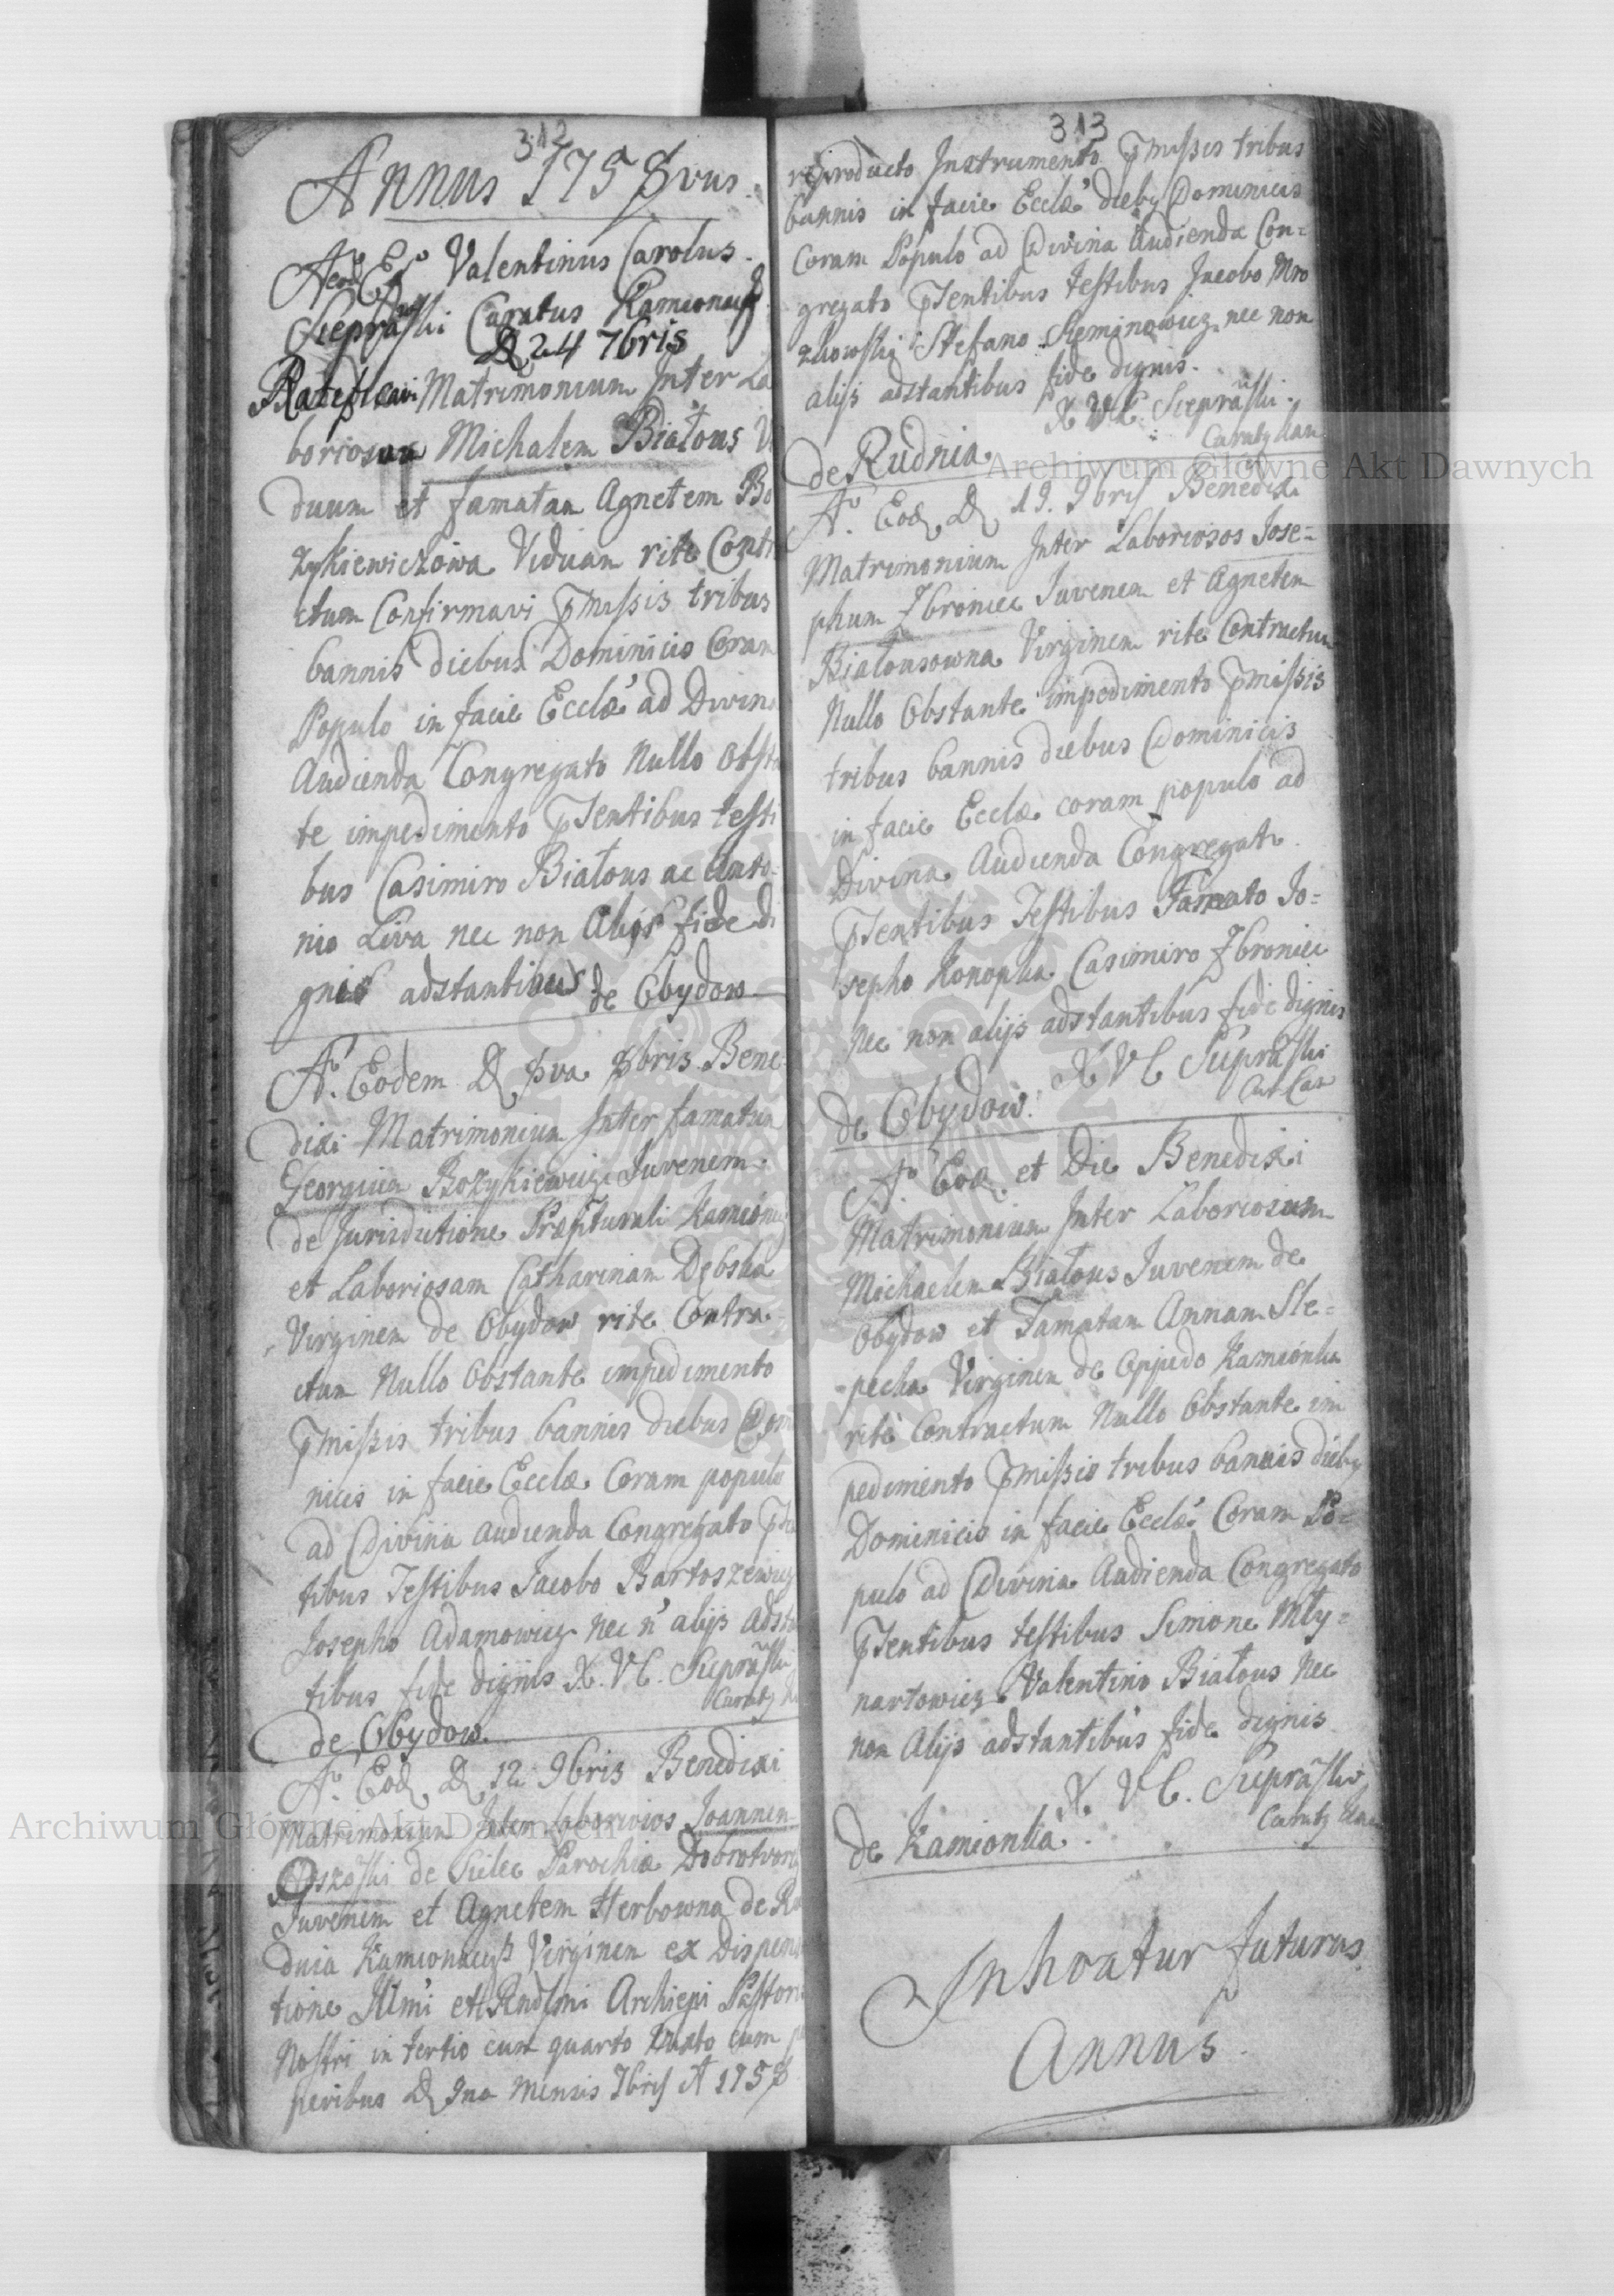 312
Annus 1758vus.
Aeod Ego Valentinus Carolus
Sieprawski Curatus Kamionacs
D 24 7bris
Ratificavi Matrimonium Inter La
boriosum Michalem Białous Vi
duum et famatam Agnetem Bo
zykiewiczowa Viduam rite Contra
ctum Confirmavi pmissis tribus
bannis diebus Dominicis Coram
Populo in facie Ecclæ ad Divina
Audienda Congregato Nullo obstan
te impedimento pſentibus testi
bus Casimiro Białous ac Anto-
nio Liva nec non Alijs fide di
gnis adstantibus de Obydow
A. Eodem D 8va 8bris Bene-
dixi Matrimonium Inter famatum
Georgium Bozykiewicz Juvenem
de Jurisdictione Præfcturali Kamionac
et Laboriosam Catharinam Dębska
Virginem de Obydow rite Contra-
ctum Nullo Obstante impedimento
pmissis tribus bannis diebus Domi
nicis in facie Ecclæ Coram populo
ad Divina Audienda Congregato pſen
tibus Testibus Jacobo Bartoszewicz
Josepho Adamowicz nec n alijs adstan
tibus fide dignis X. VC. Sieprawski
Curatg
de Obydow
A. Eod D 12 9bris Benedixi
Matrimonium Inter laboriosos Joannem
de Sielec Parochia Dobrotvor
Juvenem et Agnetem Herbowna de Ru
dnia Kamionacs Virginem ex Dispensa
tione Illmi et Rndſmi Archiepi Pastoris
Nostri in tertio cum quarto cum
peribus D 9na Mensis 7bris A 1758
313
reproducto Instrumento pmissis tribus
bannis in facie Ecclæ diebg Dominicis
Coram Populo ad Divina Audienda Con=
gregato pſentibus testibus Jacobo Mro
zkowski Stefano Sieminowicz nec non
alijs adstantibus fide dignis.
X VC Sieprawski
Curatg Kam
de Rudnia
A. Eod D 19. 9bris Benedixi
Matrimonium Inter Laboriosos Jose=
phum Zbroniec Juvenem et Agnetem
Białousowna Virginem rite Contractum
Nullo Obstante impedimento pmissis
tribus bannis diebus Dominicis
in facie Ecclæ coram populo ad
Divina Audienda Congregato
pſentibus Testibus Famato Jo=
sepho Konopka Casimiro Zbroniec
nec non alijs adstantibus fide dignis
X VC Sieprawski
Cut Cam
de Obydow.
A. Eod. et Die Benedixi
Matrimonium Inter Laboriosum
Michaelem Białous Juvenem de
Obydow et Famatam Annam Sle=
pecka Virginem de Oppido Kamionka
rite Contractum Nullo Obstante im
pedimento pmissis tribus bannis diebg
Dominicis in facie Ecclæ Coram Po=
pulo ad Divina Audienda Congregato
pſentibus testibus Simone Mły=
nartowicz Valentino Białous nec
non Alijs adstantibus fide dignis
X. VC. Sieprawski
Curatg Kam
de Kamionka
Inhoatur futurus
Annus.
Archiwum Główne Akt Dawnych
Archiwum Główne Akt Dawnych